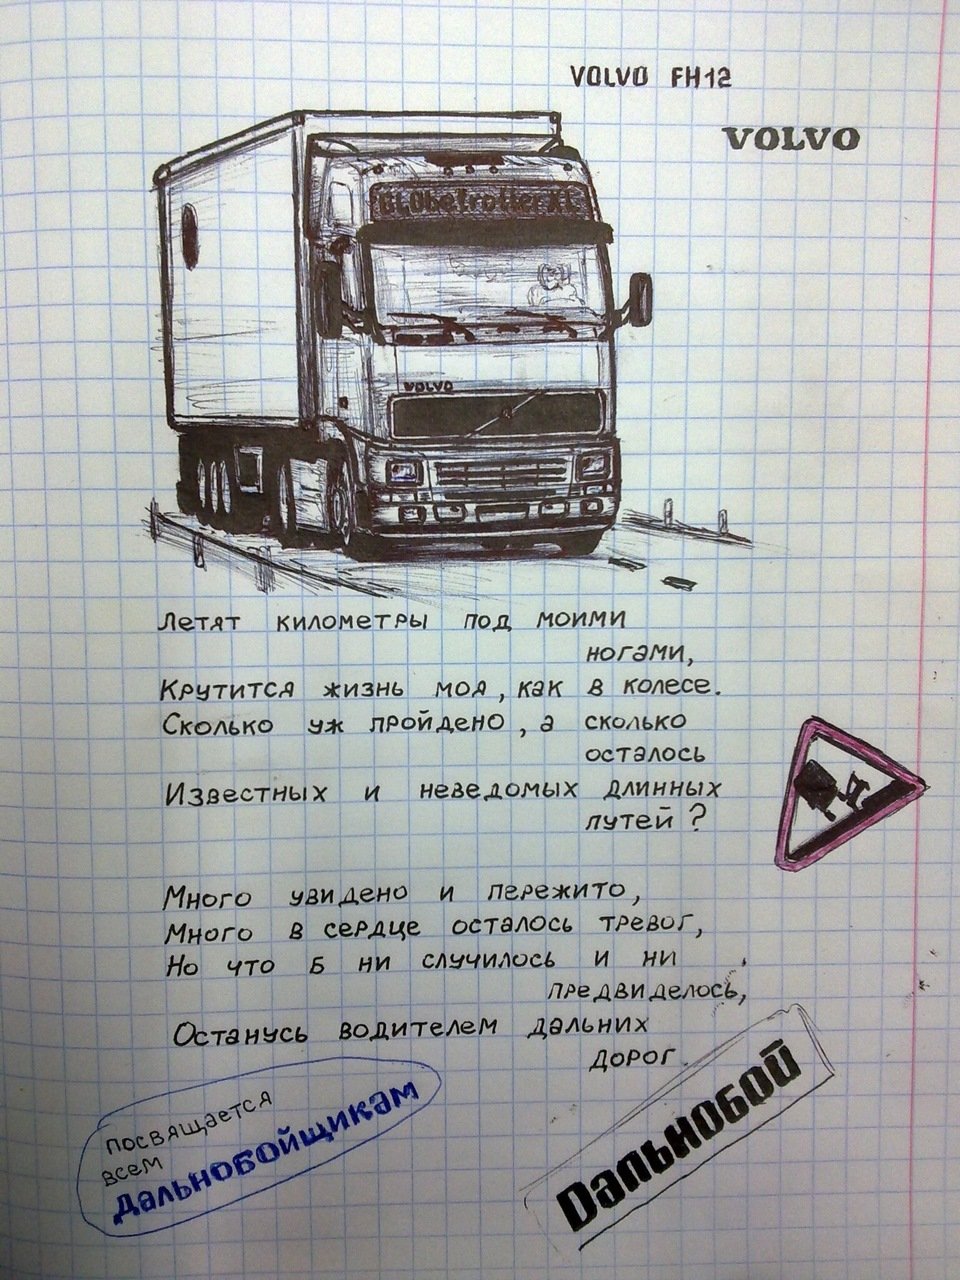 VOLVO FH12
VOLVO
GLObetrotter XL
VOLVO
Летят километры под моими
ногами,
Крутится жизнь моя, как в колесе.
Сколько уж пройдено, а сколько
осталось
Известных и неведомых длинных
путей?
Много увидено и пережито,
Много в сердце осталось тревог,
Но что б ни случилось и ни
предвиделось,
Останусь водителем дальних
дорог.
посвящается
всем
дальнобойщикам
Dальнобой